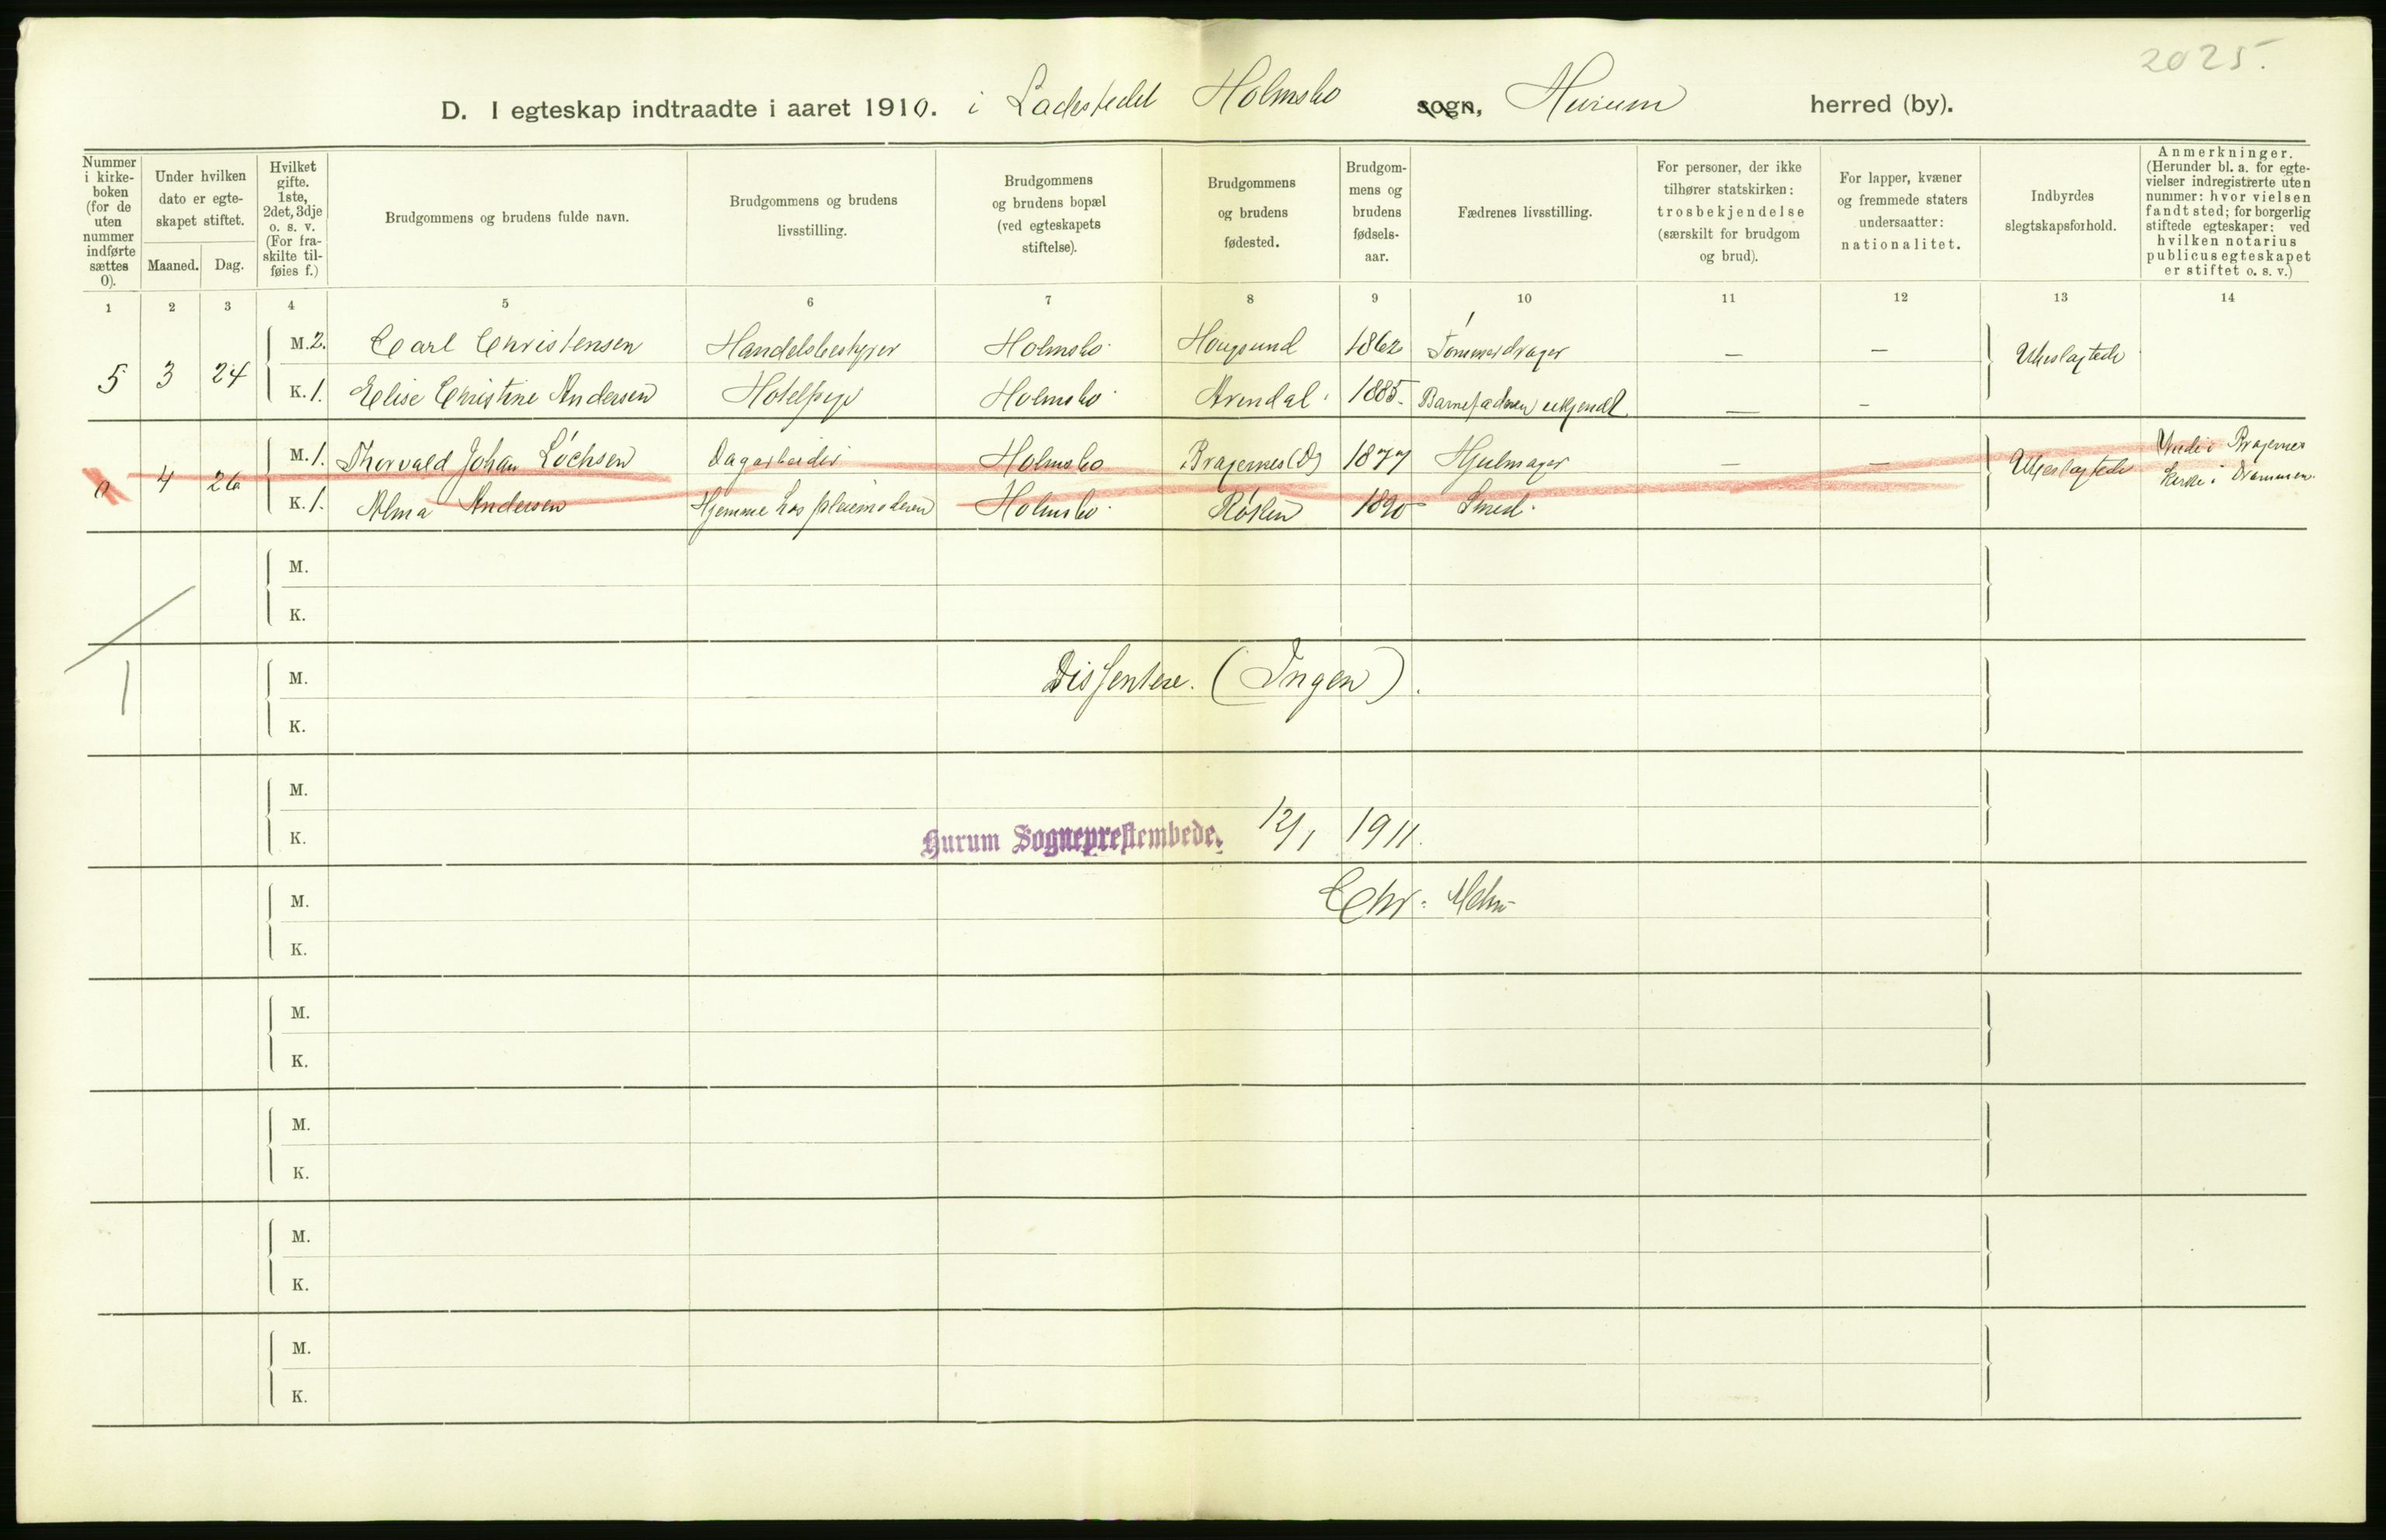 2025.
D. I egteskap indtraadte i aaret 1910. i Ladestedet Holmsbo sogn, Hurum herred (by).
Nummer i kirke-boken (for de uten nummer indførte sættes 0).
Under hvilken dato er egte-skapet stiftet.
Maaned. Dag.
Hvilket gifte. 1ste, 2det, 3dje o. s. v. (For fra-skilte til-føies f.)
Brudgommens og brudens fulde navn.
Brudgommens og brudens livsstilling.
Brudgommens og brudens bopæl (ved egteskapets stiftelse).
Brudgommens og brudens fødested.
Brudgom-mens og brudens fødsels-aar.
Fædrenes livsstilling.
For personer, der ikke tilhører statskirken: trosbekjendelse (særskilt for brudgom og brud).
For lapper, kvæner og fremmede staters undersaatter: nationalitet.
Indbyrdes slegtskapsforhold.
Anmerkninger. (Herunder bl. a. for egte-vielser indregistrerte uten nummer: hvor vielsen fandt sted; for borgerlig stiftede egteskaper: ved hvilken notarius publicus egteskapet er stiftet o. s. v.)
1 2 3 4 5 6 7 8 9 10 11 12 13 14
5 3 24 M. 2. Carl Christensen Handelsbestyrer Holmsbo Hougsund 1862 Tømmerdrager — — Ubeslægtede
K. 1. Elise Christine Andersen Hotelpige Holmsbo Arendal 1885. Barnefaderen ukjendt — —
0 4 26 M. 1. Thorvald Johan Lochsen Dagarbeider Holmsbo Bragernes (D) 1877 Hjulmager — — Ubeslægtede Viede i Bragernes Kirke i Drammen.
K. 1. Alma Andersen Hjemme hos pleiemoderen Holmsbo Røken 1890 Smed.
M.
K.
M. Dissentere. (Ingen).
K.
M.
K. Hurum Sogneprestembede. 12/1 1911.
M. Chr.
K.
M.
K.
M.
K.
M.
K.
M.
K.